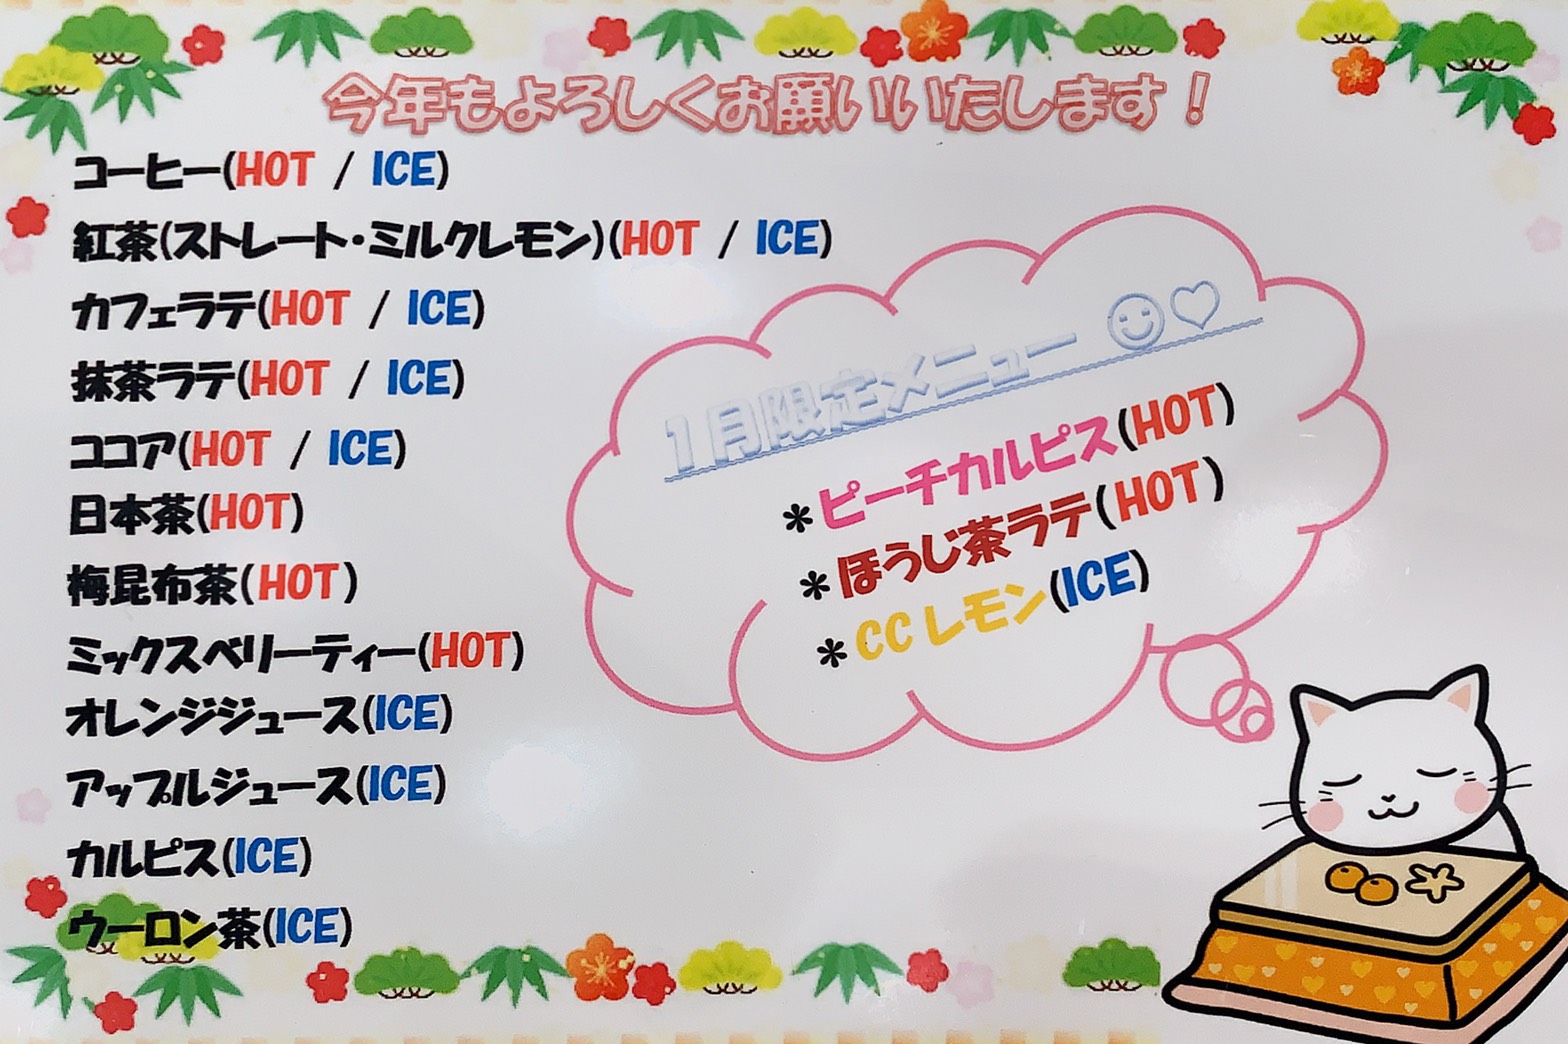 今年もよろしくお願いいたします！
コーヒー(HOT / ICE)
紅茶(ストレート・ミルクレモン)(HOT / ICE)
カフェラテ(HOT / ICE)
抹茶ラテ(HOT / ICE)
ココア(HOT / ICE)
日本茶(HOT)
梅昆布茶(HOT)
ミックスベリーティー(HOT)
オレンジジュース(ICE)
アップルジュース(ICE)
カルピス(ICE)
ウーロン茶(ICE)
1月限定メニュー☺♡
＊ピーチカルピス(HOT)
＊ほうじ茶ラテ(HOT)
＊CCレモン(ICE)